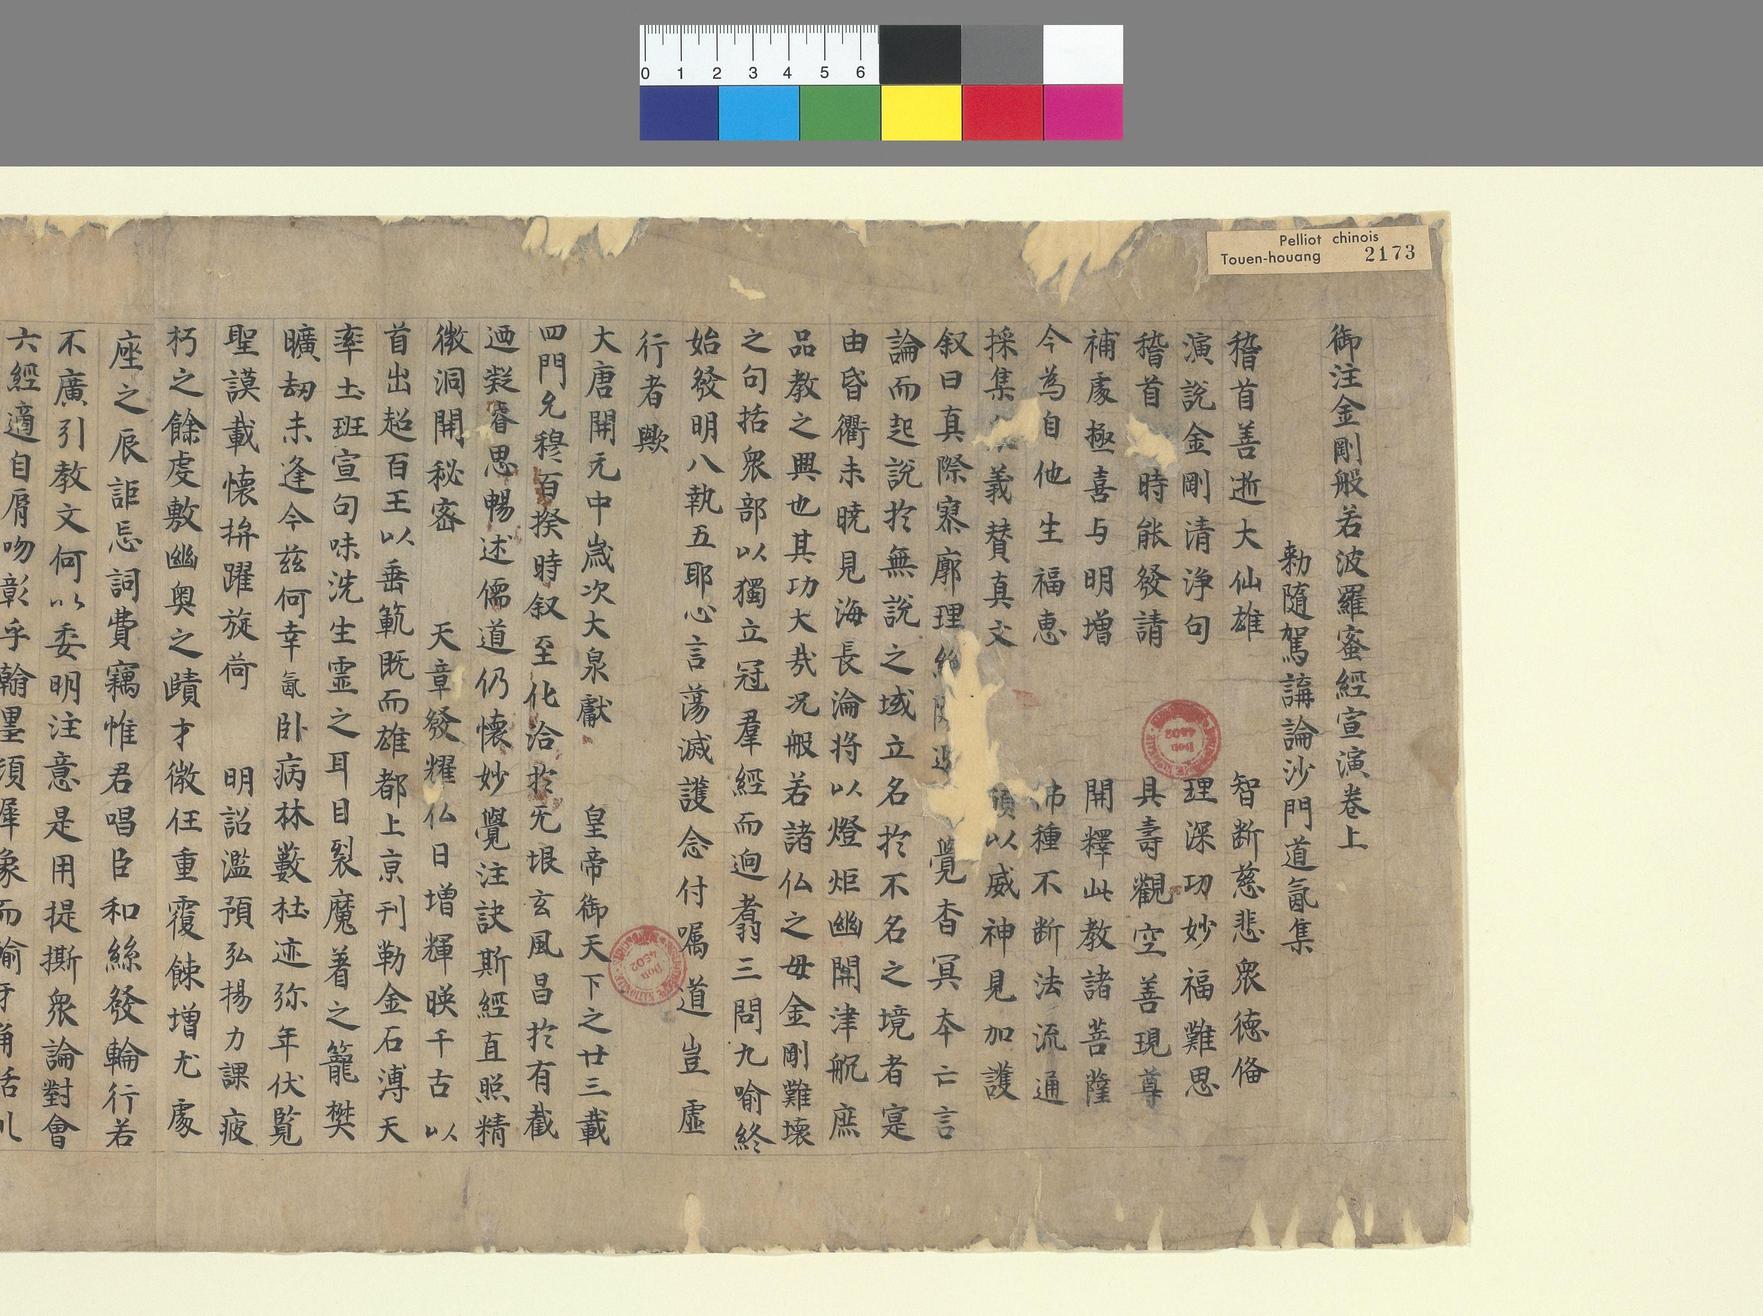 Pelliot chinois
Touen-houang 2173
0 1 2 3 4 5 6
御注金剛般若波羅蜜經宣演卷上
勑隨駕講論沙門道氤集
稽首善逝大仙雄 智断慈悲衆徳俻
演說金剛清淨句 理深功妙福難思
稽首 時能發請 具壽觀空善現尊
補處極喜与明增 開釋此教諸菩薩
今為自他生福恵 佛種不断法流通
採集 義賛真文 願以威神見加護
叙曰真際寥廓理 覺杳冥夲亡言
論而起說扵無說之域立名扵不名之境者寔
由昏衢未曉見海長淪将以燈炬幽關津舩庶
品教之興也其功大㢤况般若諸仏之母金剛難壞
之句括衆部以獨立冠羣經而迥翥三問九喻終
始發明八執五耶心言蕩滅護念付嘱道豈虛
行者歟
大唐開元中歲次大泉獻 皇帝御天下之廿三載
四門允穆百揆時叙至化洽扵无垠玄風昌扵有截
迺凝睿思暢述儒道仍懷妙覺注訣斯經直照精
微洞開秘密 天章發耀仏日增輝暎千古以
首出超百王以垂範既而雄都上京刊勒金石溥天
率土班宣句味洗生靈之耳目裂魔着之籠樊
曠劫未逢今兹何幸氤卧病林藪杜迹弥年伏覧
聖謨載懷抃躍旋荷 明詔濫預弘揚力課疲
朽之餘虔敷幽奥之賾才微任重覆餗增尤處
座之辰詎忘詞費竊惟君唱臣和絲發輪行若
不廣引教文何以委明注意是用提撕衆論對會
六經適自屑吻彰乎翰墨須犀象而喻牙角括